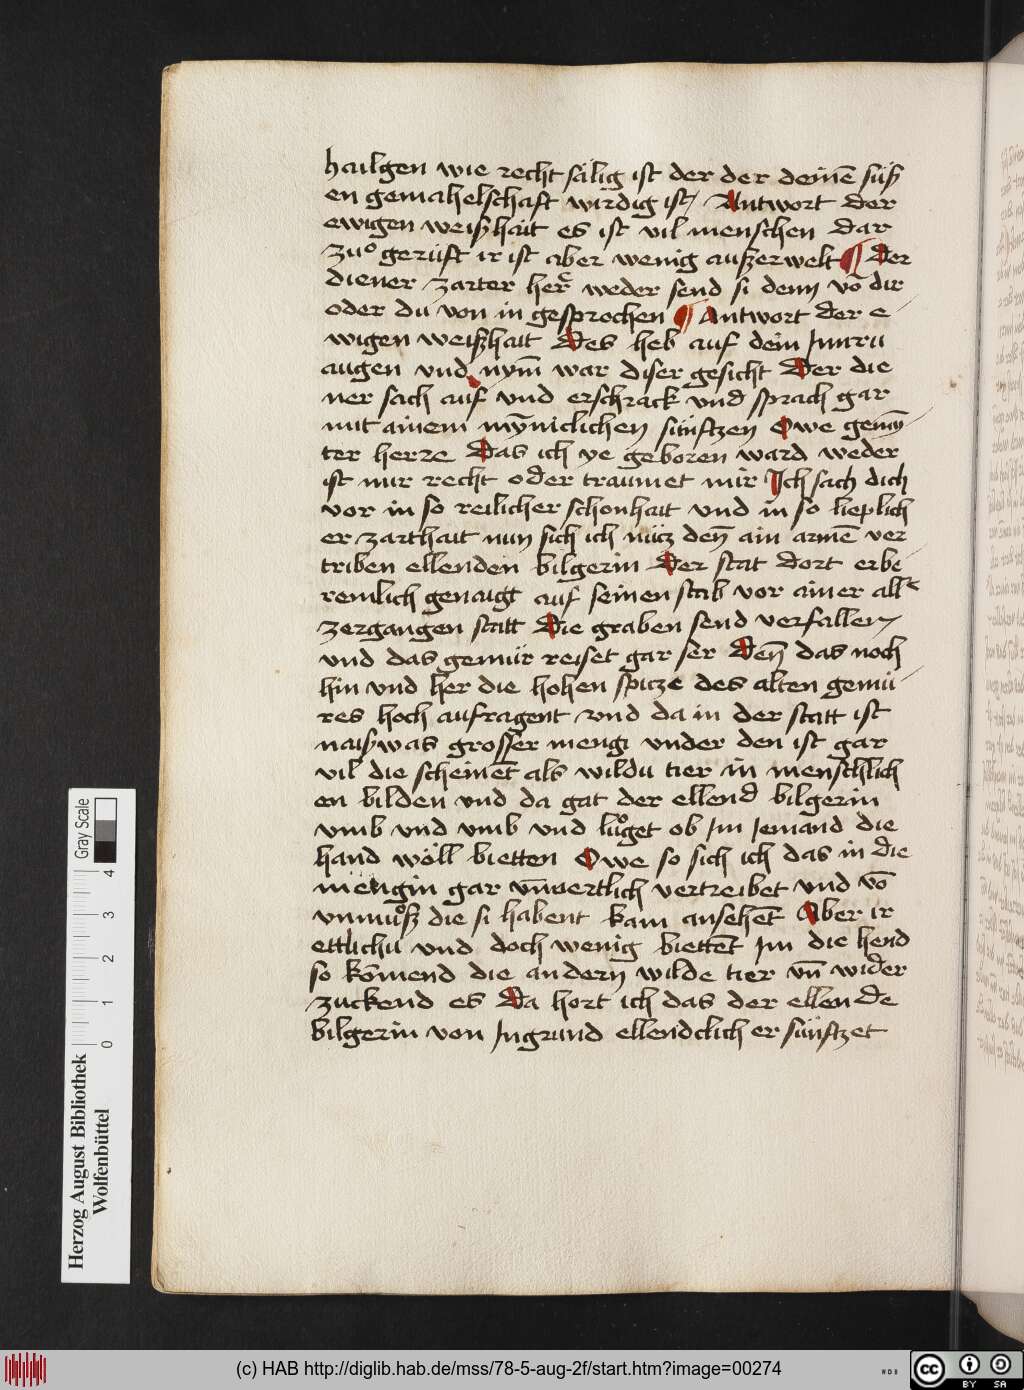 hailgen wie recht sälig ist der der deinē süß
en gemahelschaft wirdig ist / Antwort der
ewigen weißhait es ist vil menschen dar
zuͦ gerüft ir ist aber wenig außerwelt ¶ Der
diener zarter her᷑ weder send si denn vō dir
oder du von in gesprochen ¶ Antwort der e
wigen weißhait Des heb auf dein Jnnru
augen vnd nym̄ war diser gesicht Der die
ner sach auf vnd erschrack vnd sprach gar
mit ainem mȳniclichen süinftzen Owe gemȳ
ter herre Das ich ye geboren ward weder
ist mir recht oder traumet mir Ich sach dich
vor in so reilicher schonhait vnd in so lieplich
er zarthait nun sich ich nücz den̄ ain armē ver
triben ellenden bilgerin Der stat dort erbe
remlich genaigt auf seinen stab vor ainer all
zergangen statt Die graben send verfallen
vnd das gemür reiset gar ser Den̄ das noch
hin vnd her die hohen spicze des alten gemü
res hoch aufragent vnd da in der statt ist
naißwas grosser mengi vnder den ist gar
vil die scheinēt als wildu tier in menschlich
en bilden vnd da gat der ellend bilgerin
vmb vnd vmb vnd luͦget ob Jm Jemand die
hand wöll bietten Owe so sich ich das in die
mengin gar vn̄wertlich vertreibet vnd vō
vnmuͦß die si habent kam ansehēt Aber ir
ettlichu vnd doch wenig biettēt Jm die hend
so kōmend die andern wilde tier vn̄ wider
zuckend es Da hort ich das der ellende
bilgerin von Jngrund ellendclich er süinftzet
Herzog August Bibliothek
Wolfenbüttel
Gray Scale
0 1 2 3 4
(c) HAB http://diglib.hab.de/mss/78-5-aug-2f/start.htm?image=00274
WDB
cc BY SA